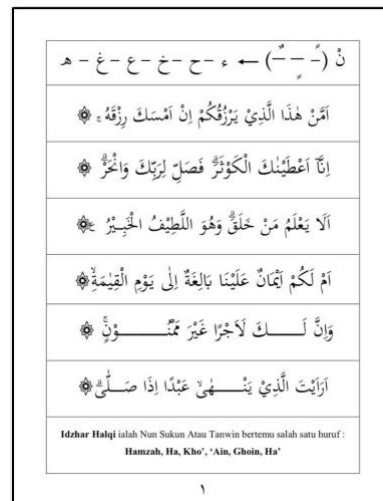 نْ (ـًـ ـٍـ ـٌـ) ← ء – ح – خ – ع – غ – ه
اَمَّنْ هٰذَا الَّذِيْ يَرْزُقُكُمْ اِنْ اَمْسَكَ رِزْقَهُ ۚ ۞
اِنَّآ اَعْطَيْنٰكَ الْكَوْثَرَۗ فَصَلِّ لِرَبِّكَ وَانْحَرْۗ ۞
اَلَا يَعْلَمُ مَنْ خَلَقَۗ وَهُوَ اللَّطِيْفُ الْخَبِـيْرُ ࣖ ۞
اَمْ لَكُمْ اَيْمَانٌ عَلَيْنَا بَالِغَةٌ اِلٰى يَوْمِ الْقِيٰمَةِۙ ۞
وَاِنَّ لَــــــكَ لَاَجْرًا غَيْرَ مَمْنُــــــــوْنٍۚ ۞
اَرَاَيْتَ الَّذِيْ يَنْــــهٰىۙ عَبْدًا اِذَا صَـــلّٰىۗ ۞
Idzhar Halqi ialah Nun Sukun Atau Tanwin bertemu salah satu huruf :
Hamzah, Ha, Kho', 'Ain, Ghoin, Ha'
١